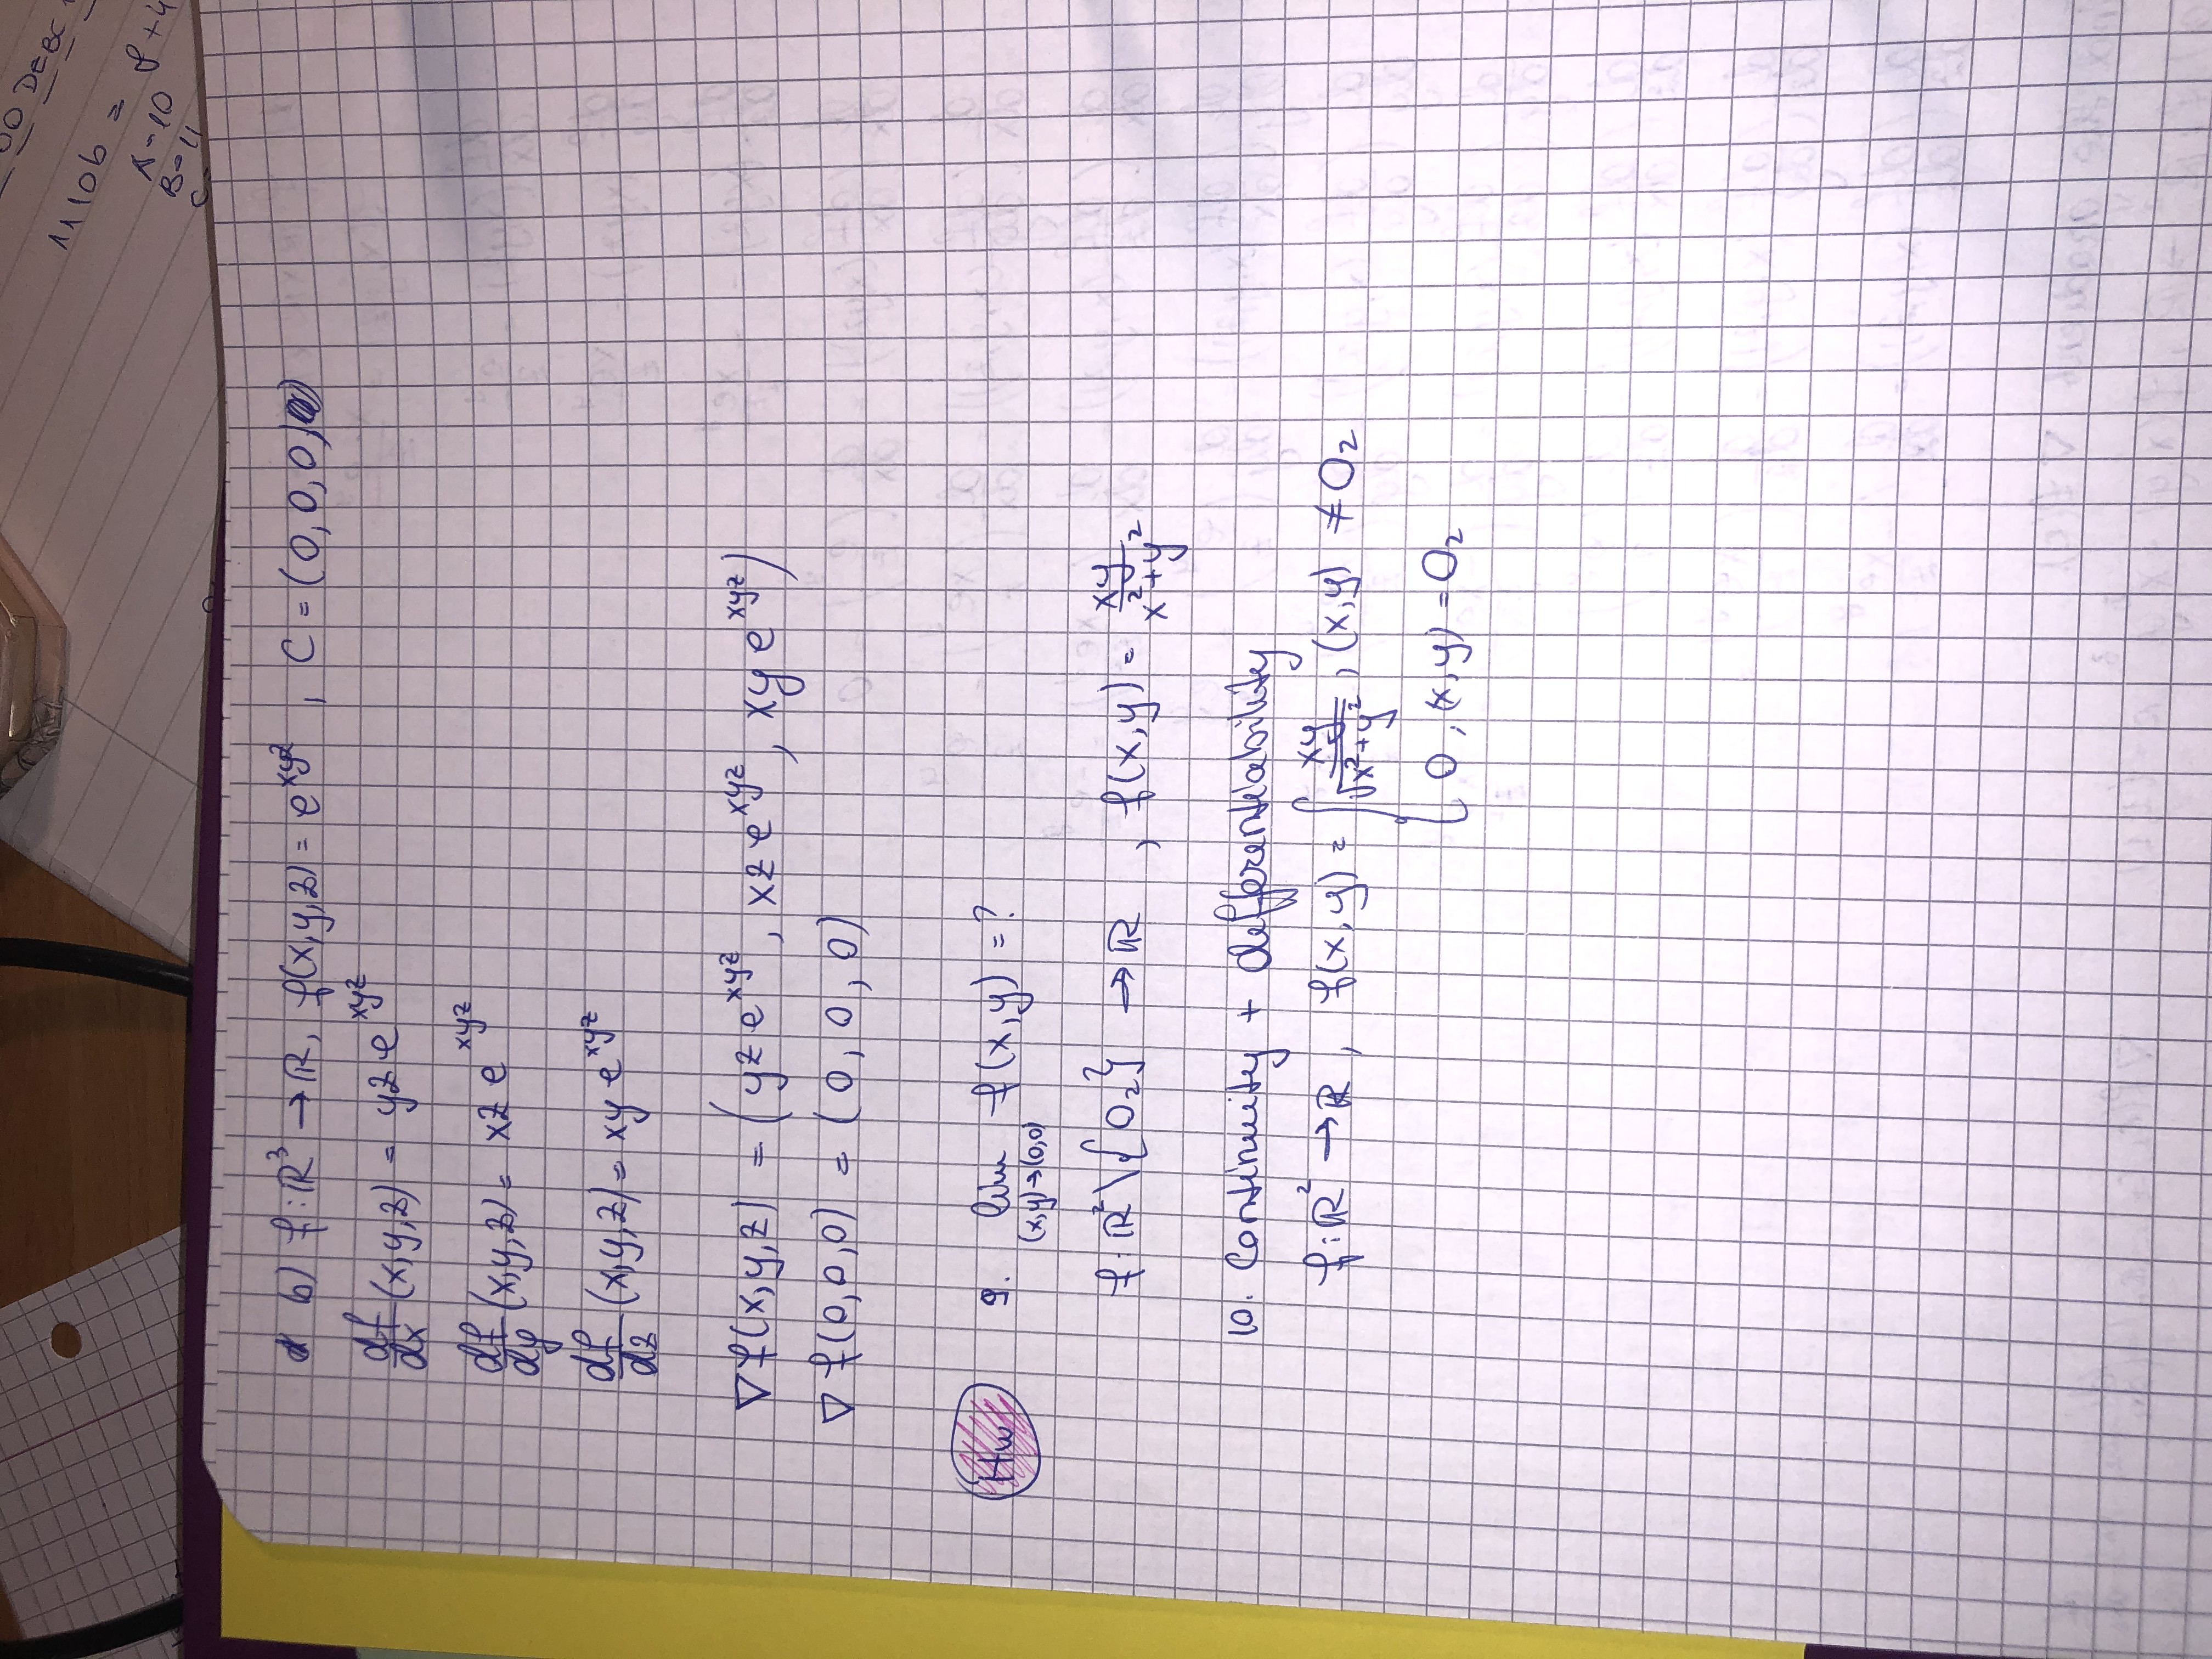 00 DEBC
1110b = 8+4
A-10
B-11
C-
b) f:ℝ³ → ℝ, f(x,y,z) = e^xyz , C = (0,0,0)
df/dx (x,y,z) = yz e^xyz
df/dy (x,y,z) = xz e^xyz
df/dz (x,y,z) = xy e^xyz
∇f(x,y,z) = (yz e^xyz, xz e^xyz, xy e^xyz)
∇f(0,0,0) = (0,0,0)
Hw 9. lim f(x,y) = ?
(x,y)→(0,0)
f:ℝ²\{O₂} → ℝ , f(x,y) = xy/(x²+y²)
10. Continuity + differentiability
f:ℝ² → ℝ, f(x,y) = { xy/√(x²+y²), (x,y) ≠ O₂
0, (x,y) = O₂